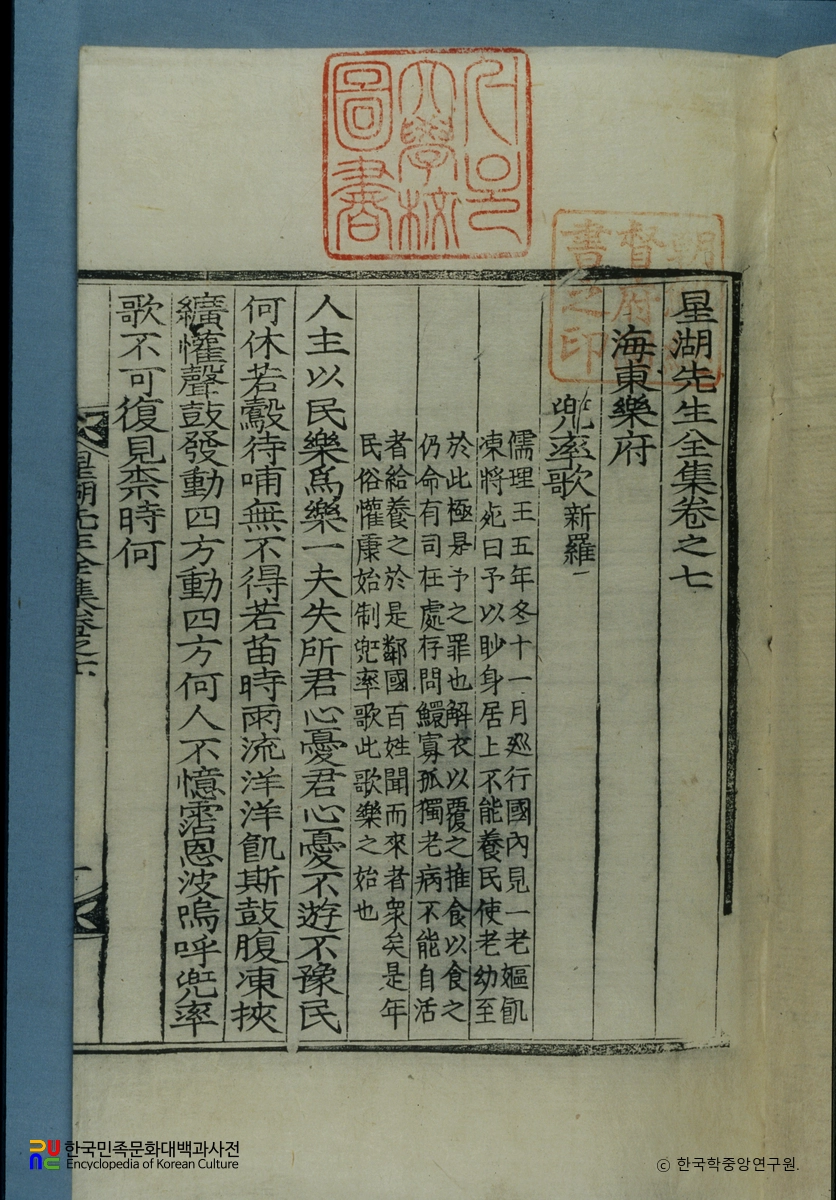 星湖先生全集卷之七
海東樂府
兜率歌 新羅一
儒理王五年冬十一月廵行國內見一老嫗飢
凍將死曰予以眇身居上不能養民使老幼至
於此極是予之罪也解衣以覆之推食以食之
仍命有司在處存問鰥寡孤獨老病不能自活
者給養之於是鄰國百姓聞而來者衆矣是年
民俗懽康始制兜率歌此歌樂之始也
人主以民樂爲樂一夫失所君心憂君心憂不遊不豫民
何休若鷇待哺無不得若苗時雨流洋洋飢斯鼓腹凍挾
纊懽聲鼓發動四方動四方何人不憶霑恩波嗚呼兜率
歌不可復見柰時何
星湖先生全集卷之七
一
大學校
圖書
朝
督府
書之印
한국민족문화대백과사전
Encyclopedia of Korean Culture
ⓒ 한국학중앙연구원.